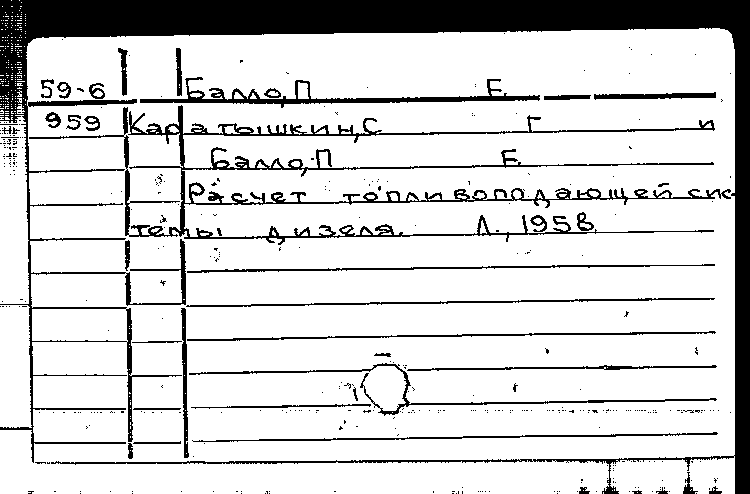 59-6 Балло, П Е.
959 Каратышкин, С Г и
Балло, П Е.
Расчет топливоподающей сис-
темы дизеля. Л., 1958